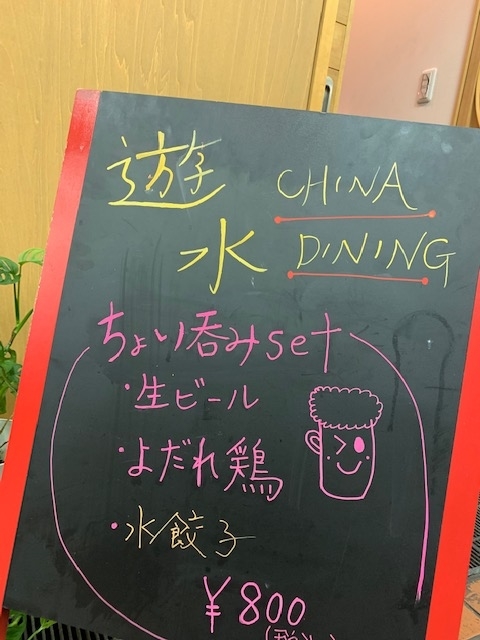 遊 CHINA
水 DINING
ちょい呑みset
・生ビール
・よだれ鶏
・水餃子
¥800